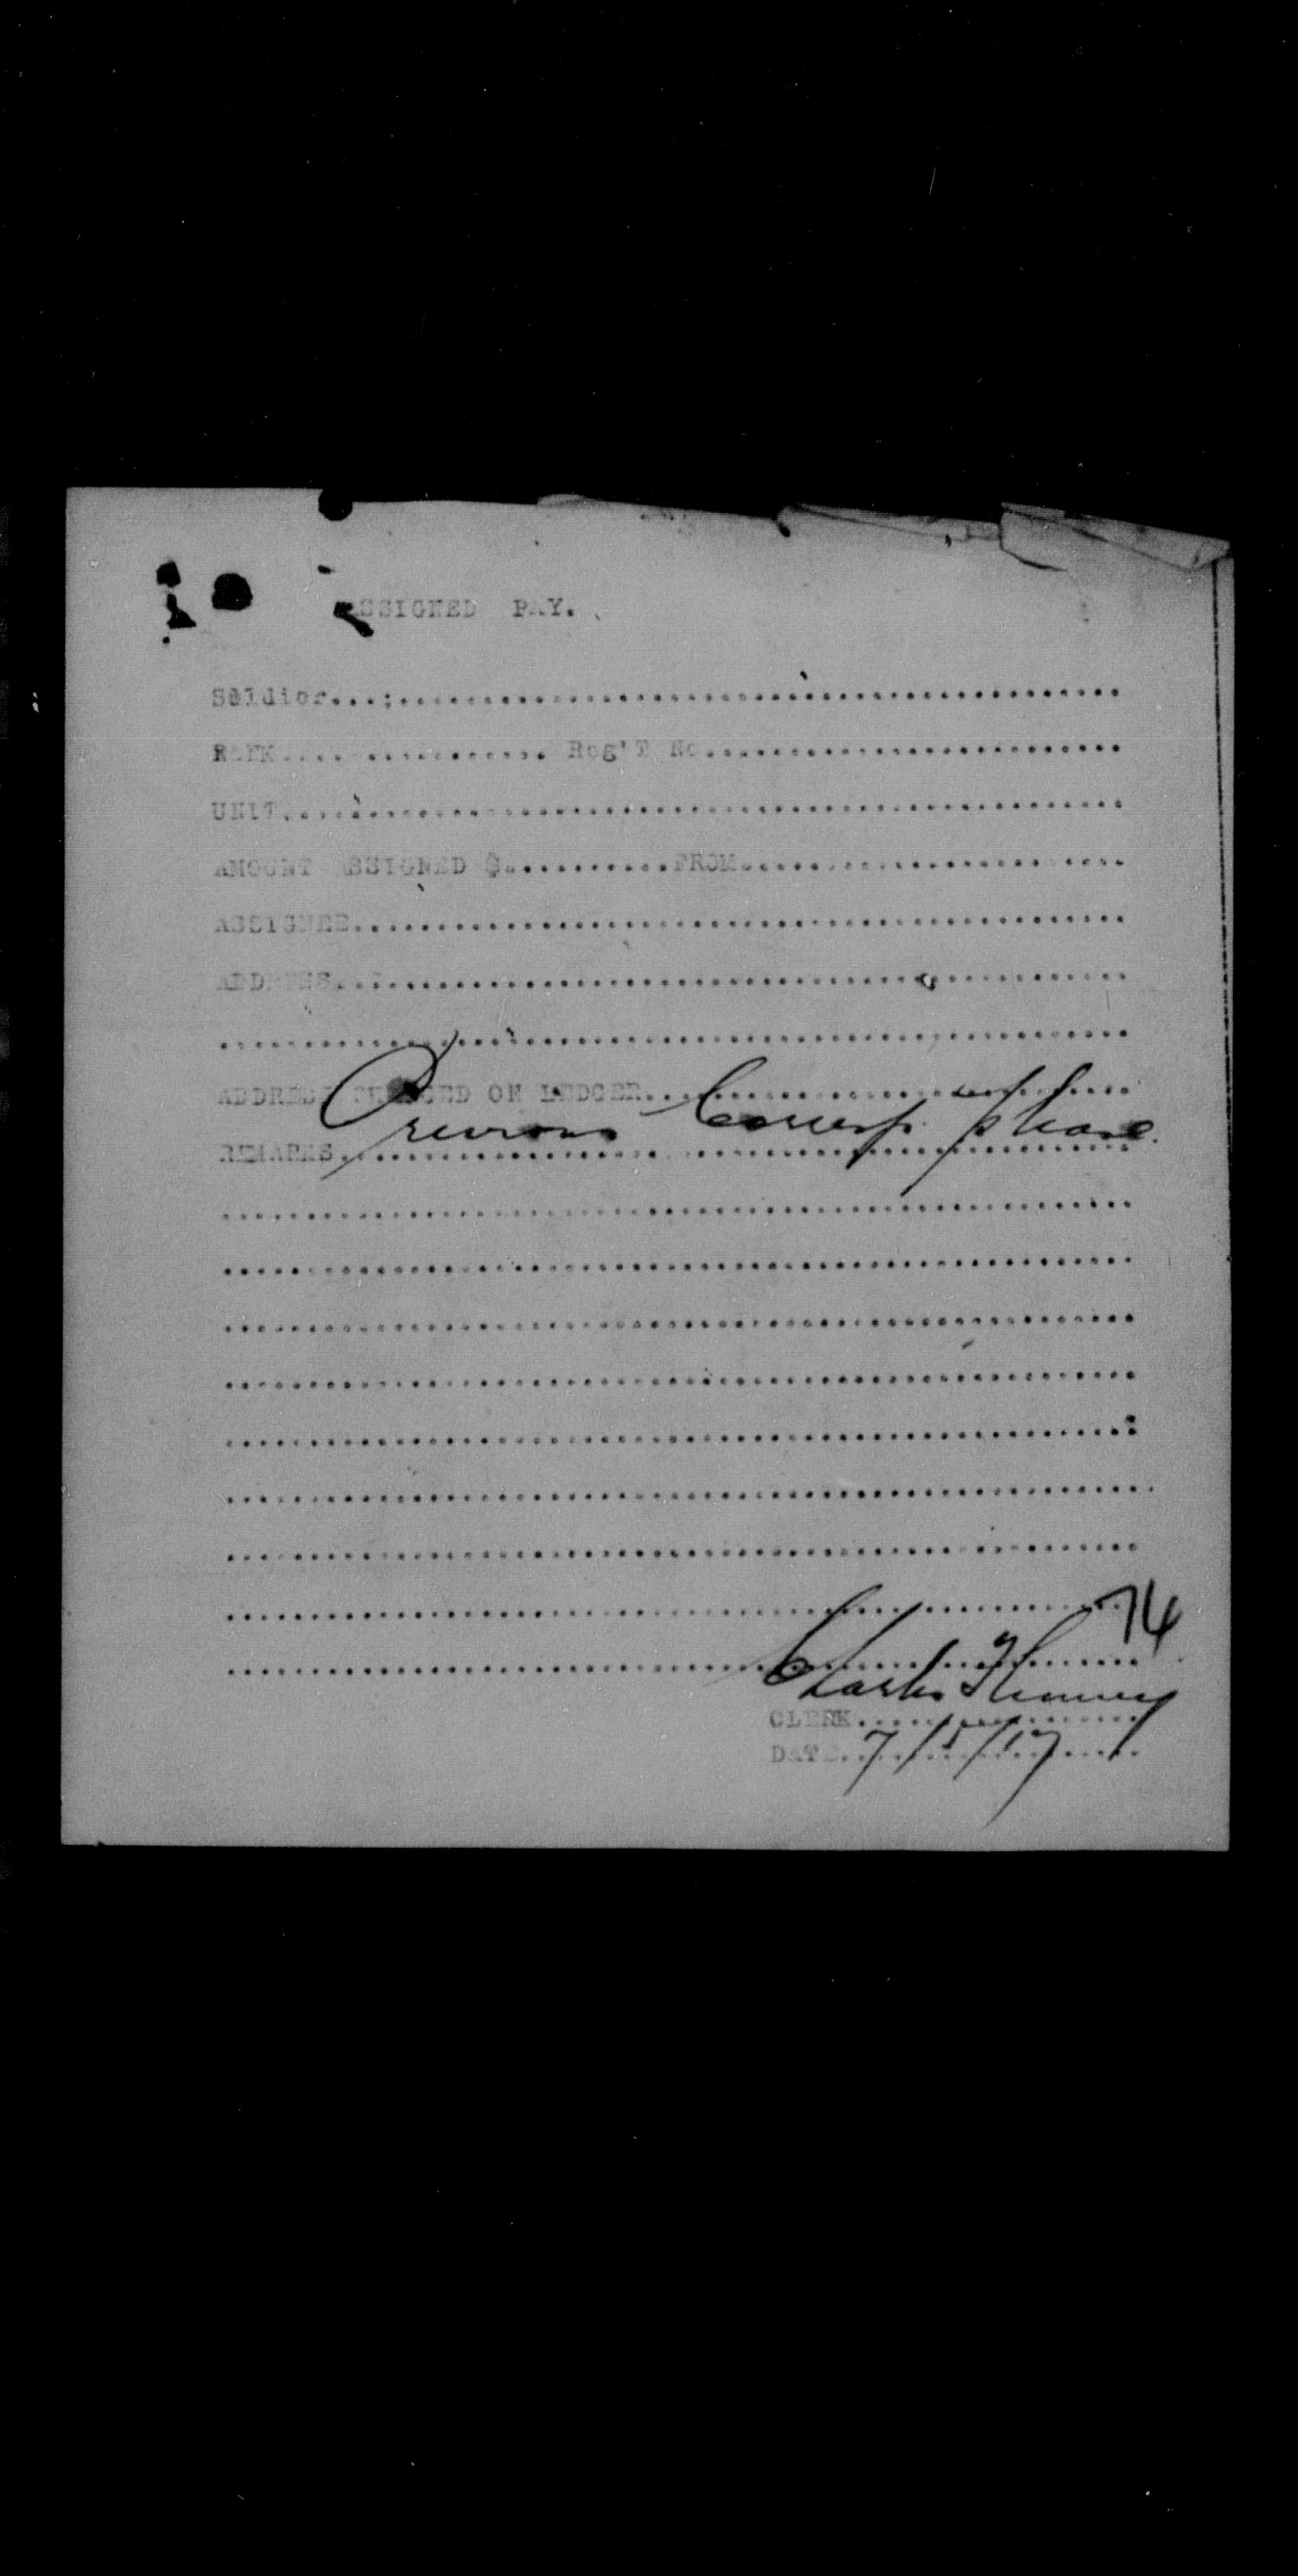 ASSIGNED PAY.
Soldier..........
RANK.......... Reg'T No..........
UNIT..........
AMOUNT ASSIGNED $..........FROM..........
ASSIGNEE..........
ADDRESS..........
..........
ADDRESS CHANGED ON LEDGER..........
Previous Corresp. please.
REMARKS..........
74
Charles
CLERK..........
DATE..7/5/17